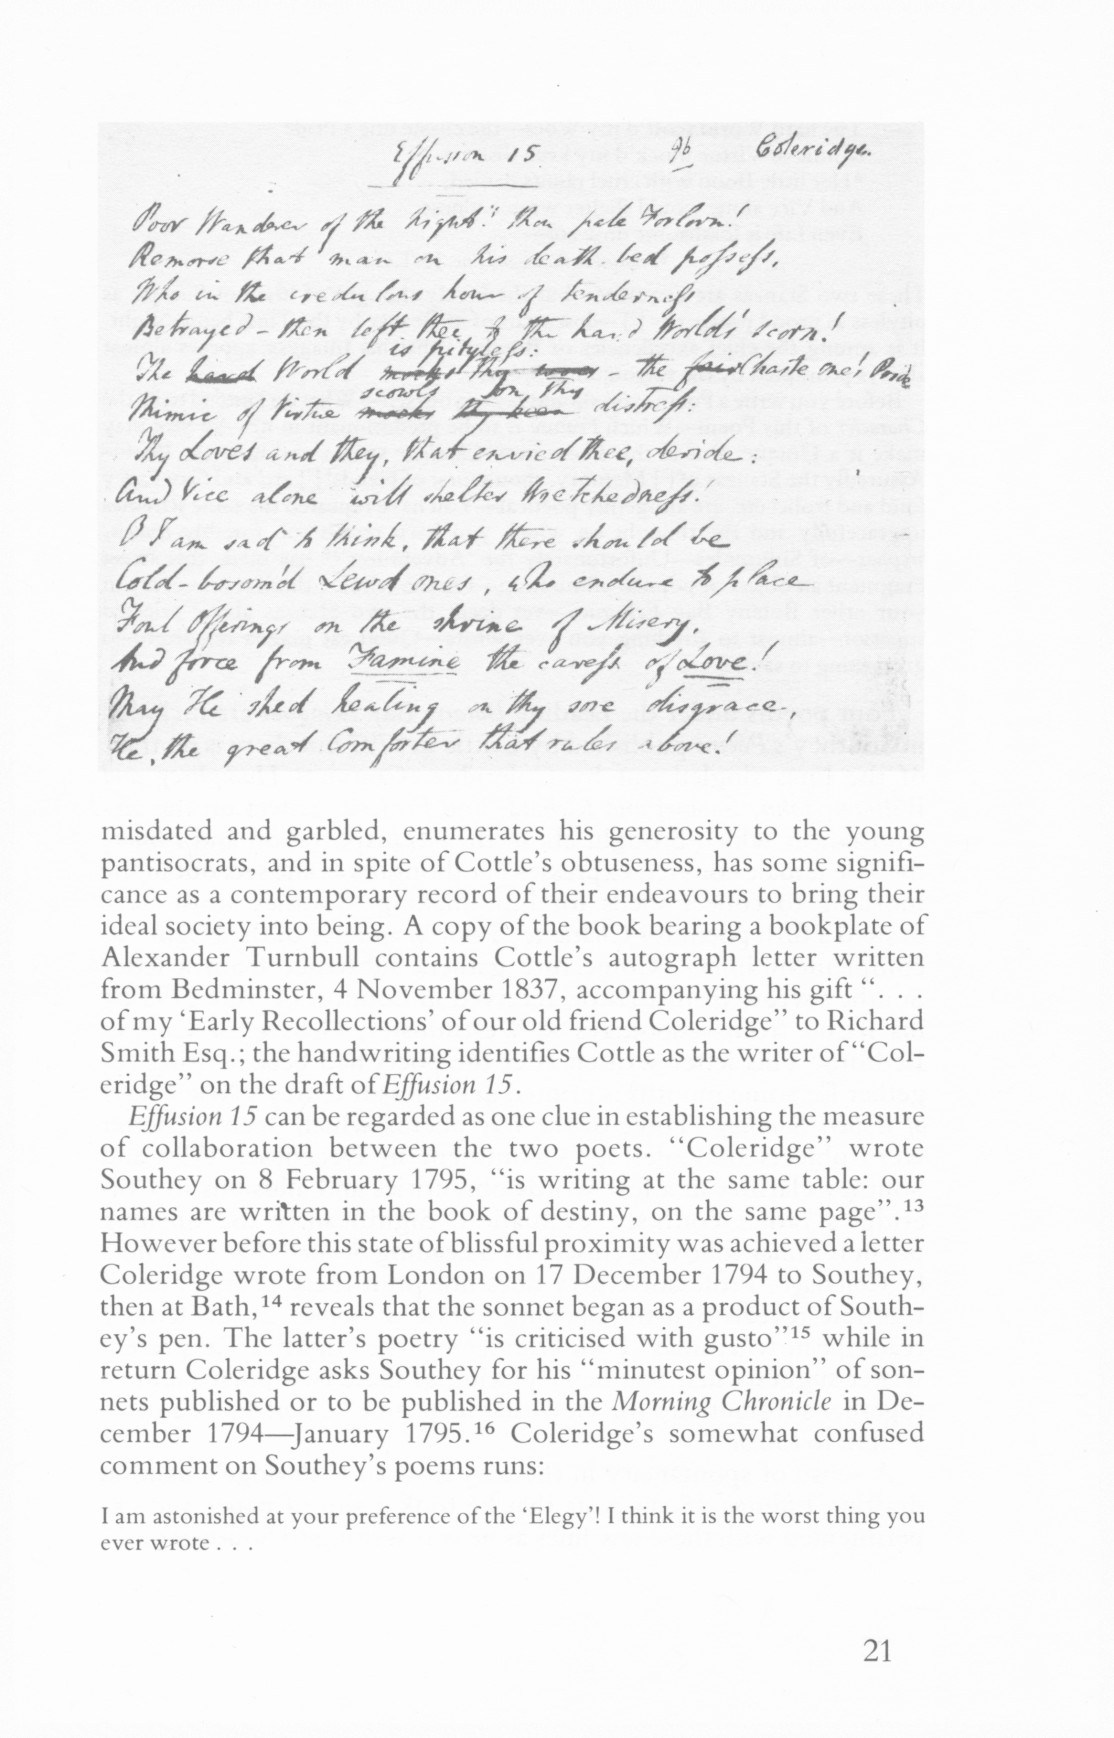 Effusion 15 96 Coleridge.
Poor Wanderer of the night! thou pale Forlorn!
Remorse that man on his death-bed possess,
Who in the credulous hour of tenderness
Betrayed - then left thee to the hard World's scorn!
is pityless:
The hard World mocks thy woes - the fair Chaste one's Pride
scowls on thy
Mimic of Virtue mocks thy keen distress:
Thy Loves and they, that envied thee, deride:
And Vice alone will shelter Wretchedness!
O I am sad to think, that there should be
Cold-bosom'd Lewd ones, who endure to place
Foul Offerings on the shrine of Misery,
And force from Famine the caress of Love!
May He shed healing on thy sore disgrace,
He, the great Comforter that rules above!
misdated and garbled, enumerates his generosity to the young
pantisocrats, and in spite of Cottle's obtuseness, has some signifi-
cance as a contemporary record of their endeavours to bring their
ideal society into being. A copy of the book bearing a bookplate of
Alexander Turnbull contains Cottle's autograph letter written
from Bedminster, 4 November 1837, accompanying his gift ". . .
of my 'Early Recollections' of our old friend Coleridge" to Richard
Smith Esq.; the handwriting identifies Cottle as the writer of "Col-
eridge" on the draft of Effusion 15.
Effusion 15 can be regarded as one clue in establishing the measure
of collaboration between the two poets. "Coleridge" wrote
Southey on 8 February 1795, "is writing at the same table: our
names are written in the book of destiny, on the same page".¹³
However before this state of blissful proximity was achieved a letter
Coleridge wrote from London on 17 December 1794 to Southey,
then at Bath,¹⁴ reveals that the sonnet began as a product of South-
ey's pen. The latter's poetry "is criticised with gusto"¹⁵ while in
return Coleridge asks Southey for his "minutest opinion" of son-
nets published or to be published in the Morning Chronicle in De-
cember 1794—January 1795.¹⁶ Coleridge's somewhat confused
comment on Southey's poems runs:
I am astonished at your preference of the 'Elegy'! I think it is the worst thing you
ever wrote . . .
21